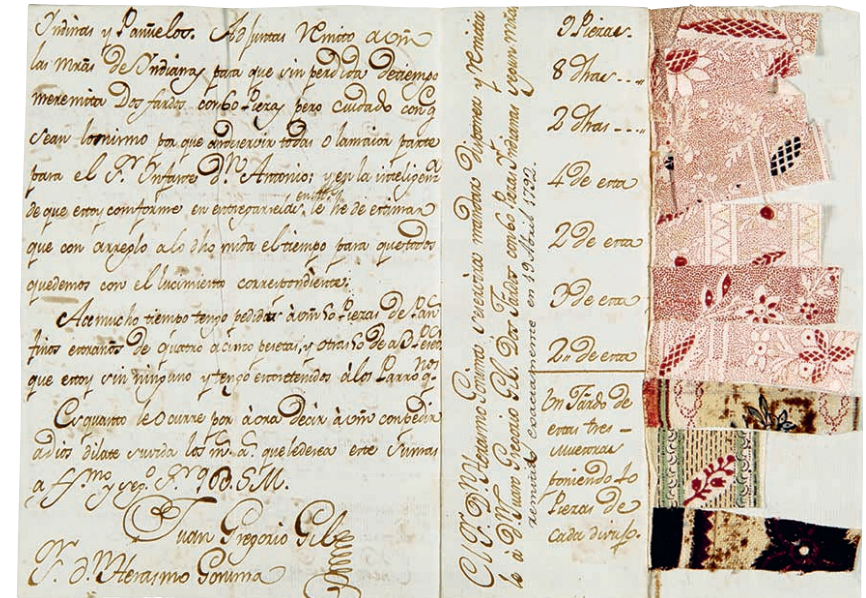 Indianas y Pañuelos. Adjuntas Remito a vm
las mrãs de Indianas para que sin perdida de tiempo
me remita Dos fardos con 60 Piezas pero cuidado con q̃
sean lo mismo por que an de servir todas o la maior parte
para el Sr. Infante Dn. Antonio; y en la inteligena
de que estoy comforme en le he de estimar
que con arreglo a lo dho mida el tiempo para que todos
quedemos con el lucimiento correspondiente.
Ace mucho tiempo tengo pedidas à vm 50 Piezas de Pan
finos de quatro a cinco pesetas, y otras 50 de a
que estoy sin ninguno y tengo entretenidos à los Parroq.nos
Es quanto le ocurre por aora decir à vm con pedir
a dios dilate su vida los ms. as. que le desea este
a ffmo y Segº. Sr. q B. S. M.
Juan Gregorio Gil
Sr. Dn. Herasmo Gonima
El Sr. Dn. Herasmo Gonima se servira mandar disponer y remitir
lo a Dn. Juan Gregorio Gil. Dos Fardos con 60 Piezas Indianas segun mrãs
remitido exactamente en 19 Abril 1792.
9 Piezas.
8 dhas ....
2 dhas ....
4 de esta
2 de esta
3 de esta
2.. de esta
Un Fardo de
estas tres
muestras
poniendo 10
Piezas de
cada dibujo.